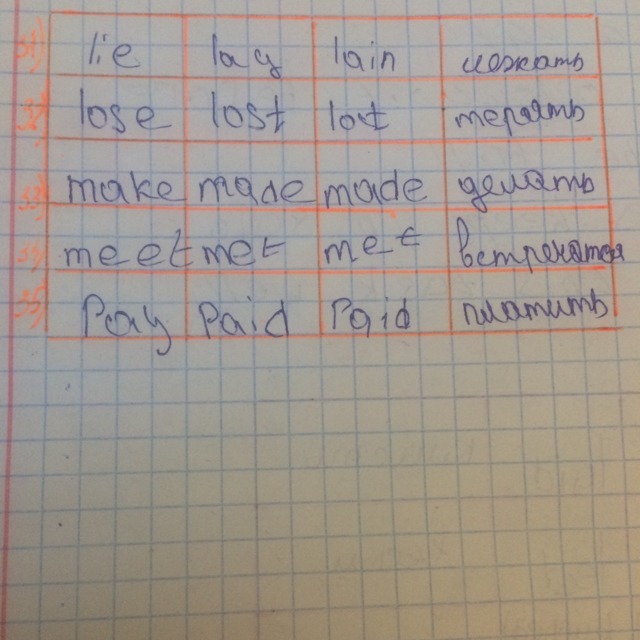 lie lay lain лежать
lose lost lost терять
make made made делать
meet met met встречатся
Pay Paid Paid платить